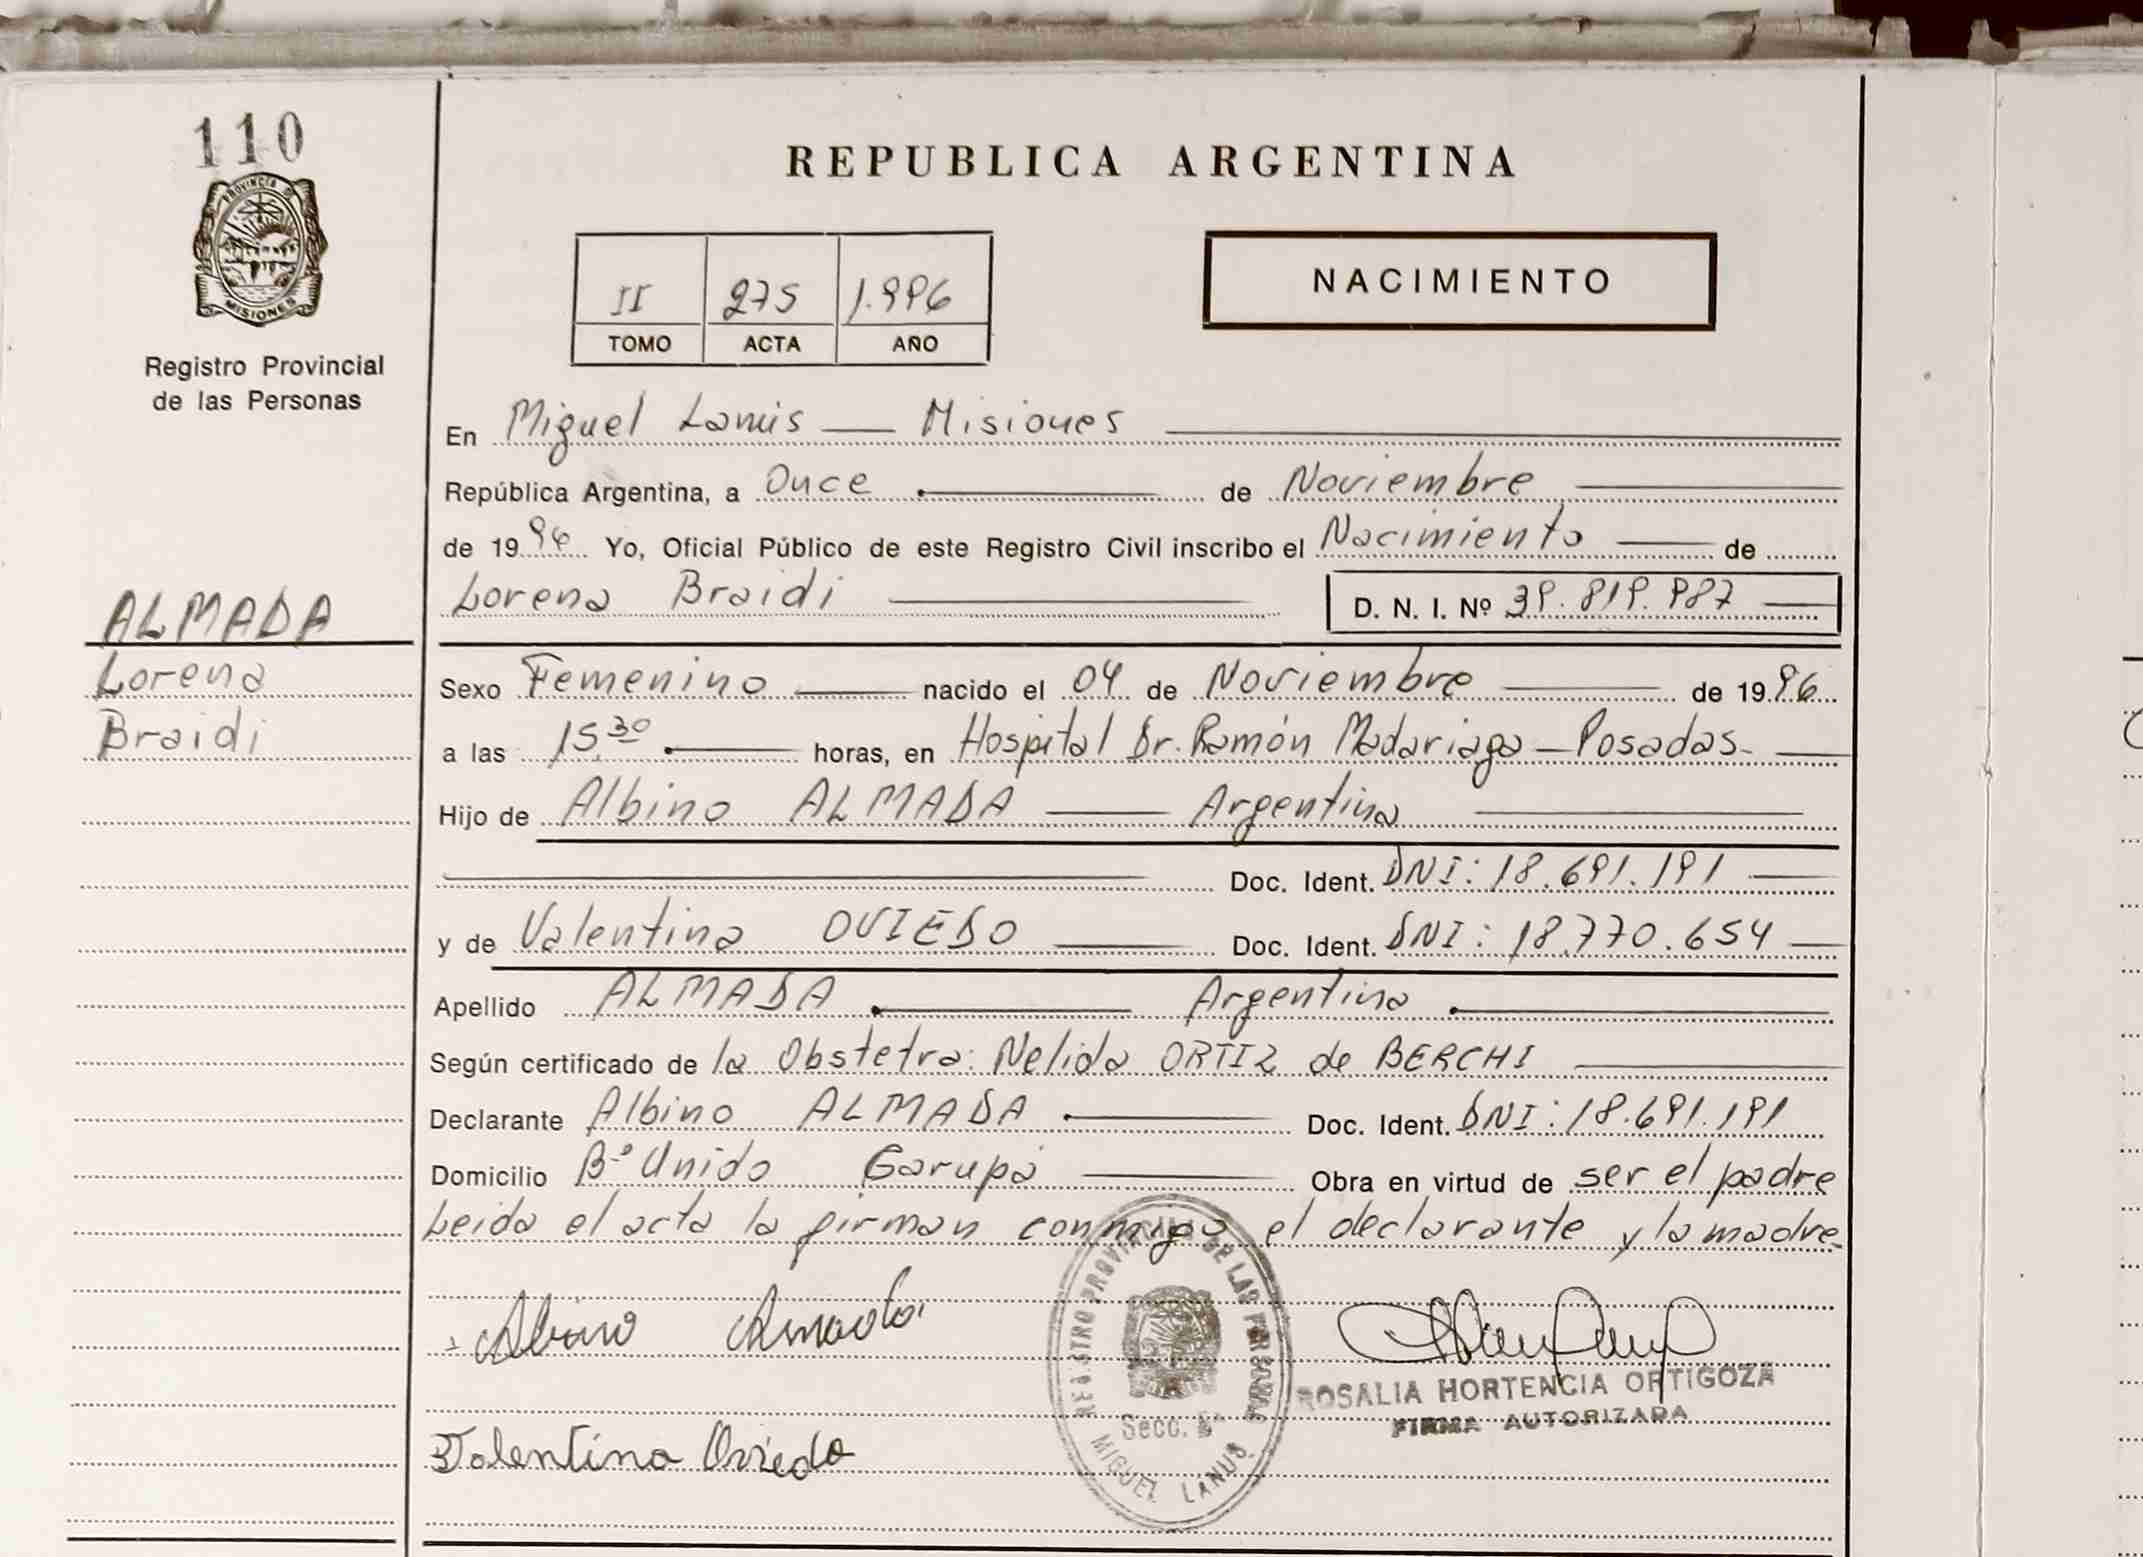 110
PROVINCIA DE
MISIONES
Registro Provincial
de las Personas
ALMADA
Lorena
Braidi
REPUBLICA ARGENTINA
II 275 1.996
TOMO ACTA AÑO
NACIMIENTO
En Miguel Lanús — Misiones
República Argentina, a Once de Noviembre
de 1996 Yo, Oficial Público de este Registro Civil inscribo el Nacimiento de
Lorena Braidi D. N. I. Nº 39.819.987
Sexo Femenino nacido el 04 de Noviembre de 1996
a las 15,30 horas, en Hospital Dr. Ramón Madariaga - Posadas.
Hijo de Albino ALMADA Argentina
Doc. Ident. DNI: 18.691.191
y de Valentina OVIEDO Doc. Ident. DNI: 18.770.654
Apellido ALMADA Argentina
Según certificado de la Obstetra: Nelida ORTIZ de BERCHI
Declarante Albino ALMADA Doc. Ident. DNI: 18.691.191
Domicilio Bº Unido Garupá Obra en virtud de ser el padre
Leida el acta la firman conmigo el declarante y la madre
Albino Almada
REGISTRO PROVINCIAL DE LAS PERSONAS
Secc.
MIGUEL LANUS
ROSALIA HORTENCIA ORTIGOZA
FIRMA AUTORIZADA
Valentina Oviedo